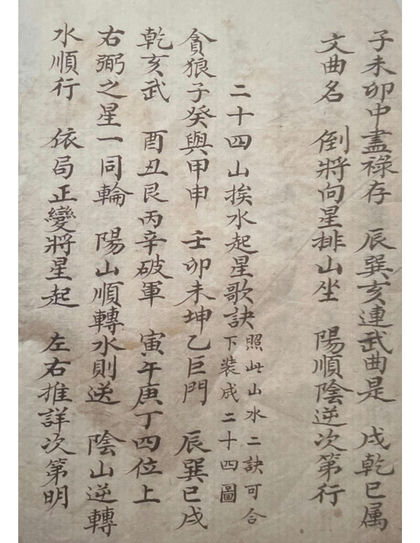 子未卯中盡祿存 辰巽亥連武曲是 戌乾巳属
文曲名 倒將向星排山坐 陽順陰逆次第行
二十四山挨水起星歌訣 照此山水二訣可合
下裝成二十四圖
貪狼子癸與甲申 壬卯未坤乙巨門 辰巽巳戌
乾亥武 酉丑艮丙辛破軍 寅午庚丁四位上
右弼之星一同輪 陽山順轉水則送 陰山逆轉
水順行 依局正變將星起 左右推詳次第明